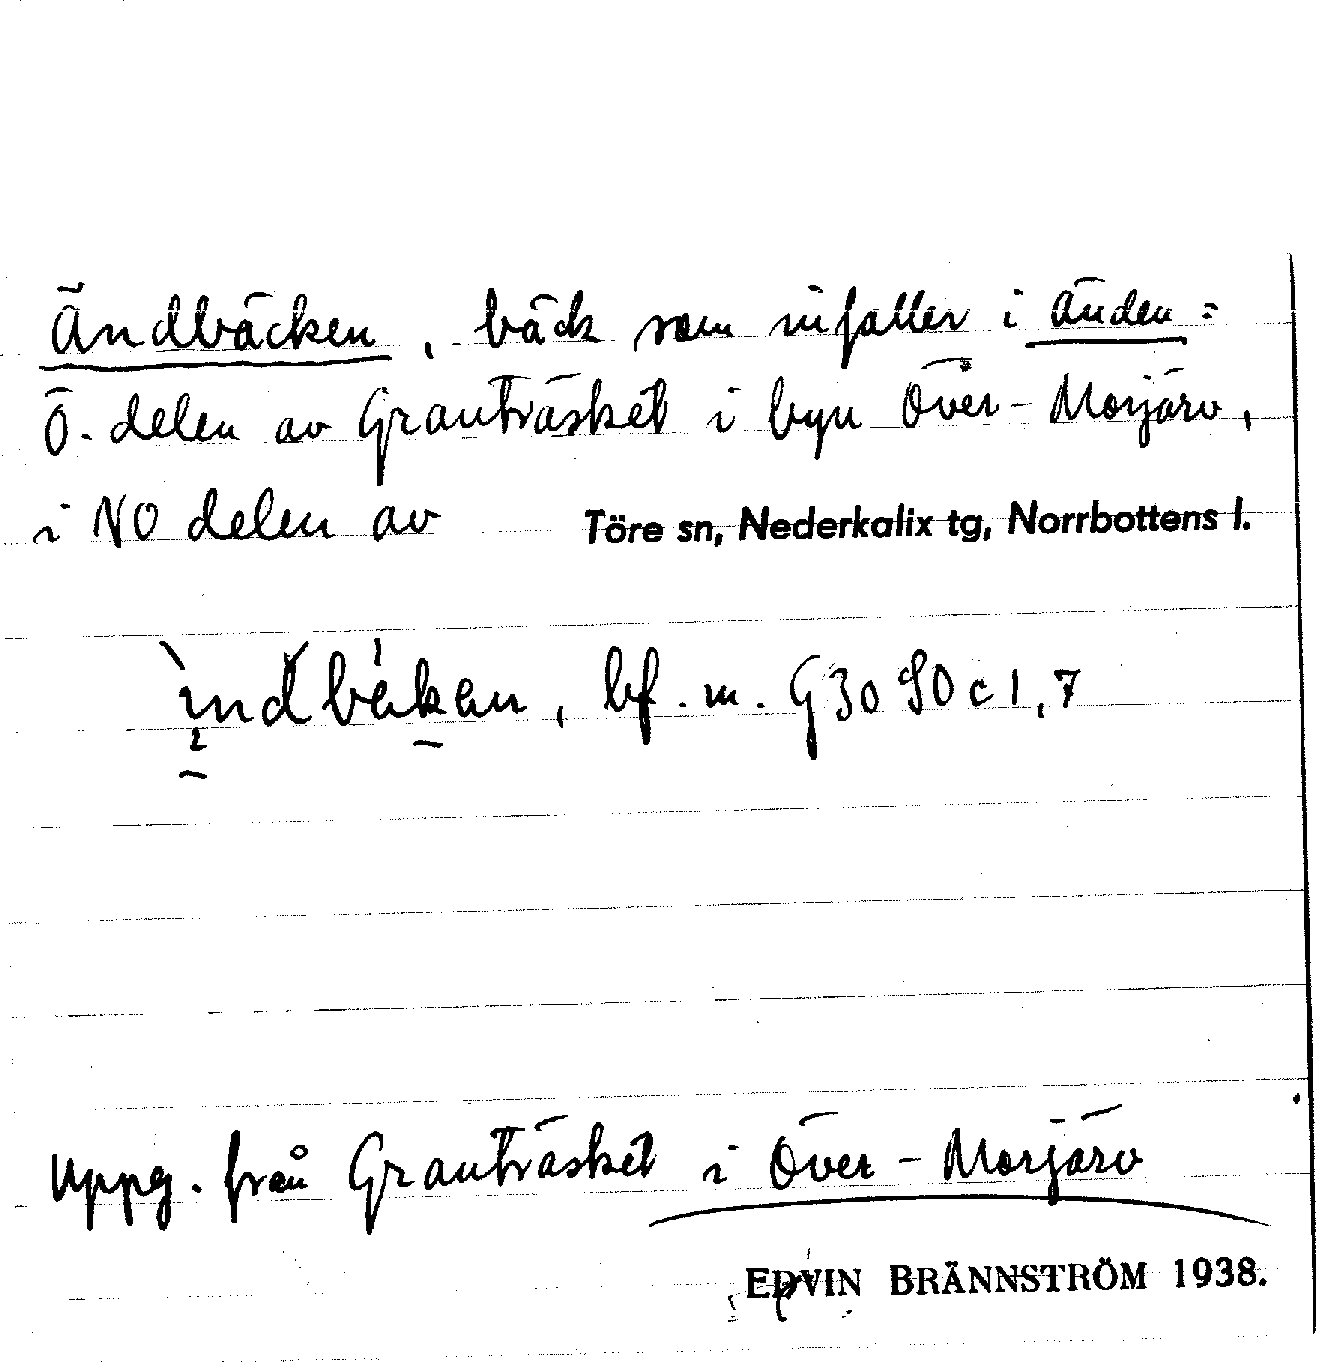 Ändbäcken, bäck som infaller i änden =
Ö. delen av Granträsket i byn Över-Morjärv,
i NO delen av Töre sn, Nederkalix tg, Norrbottens l.
bf. m.
Uppg. från Granträsket i Över-Morjärv
EDVIN BRÄNNSTRÖM 1938.